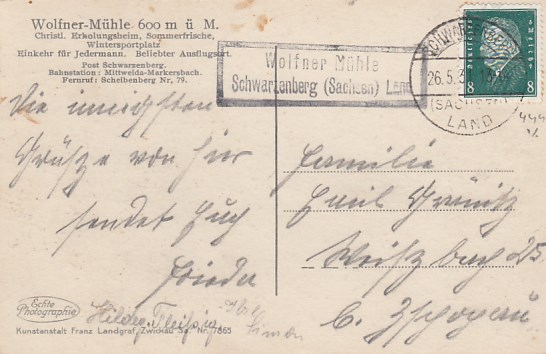 Wolfner-Mühle 600 m ü M.
Christl. Erholungsheim, Sommerfrische,
Wintersportplatz
Einkehr für Jedermann. Beliebter Ausflugsort.
Post Schwarzenberg.
Bahnstation: Mittweida-Markersbach.
Fernruf: Scheibenberg Nr. 79.
Wolfner Mühle
Schwarzenberg (Sachsen) Land
26.5.3
(SACHSEN)
LAND
8 8
Die innigsten
Grüße von hier
sendet Euch
Frieda
Familie
Emil
Weißbach 25
b. Zschopau
Echte
Photographie
Kunstanstalt Franz Landgraf, Zwickau Sa. Nr. 7865